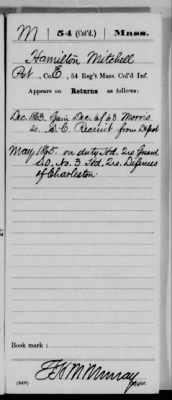 M 54 (Col'd.) Mass.
Hamilton Mitchell
Pvt, Co. E, 54 Reg't Mass. Col'd Inf.
Appears on Returns as follows:
Dec. 1863. Gain Dec. 6/63 Morris
Is. S.C. Recruit from Depot
May, 1865. on duty Hd. Qrs Guard
S.O. No. 3 Hd. Qrs. Defences
of Charleston.
Book mark:
Murray
(546)